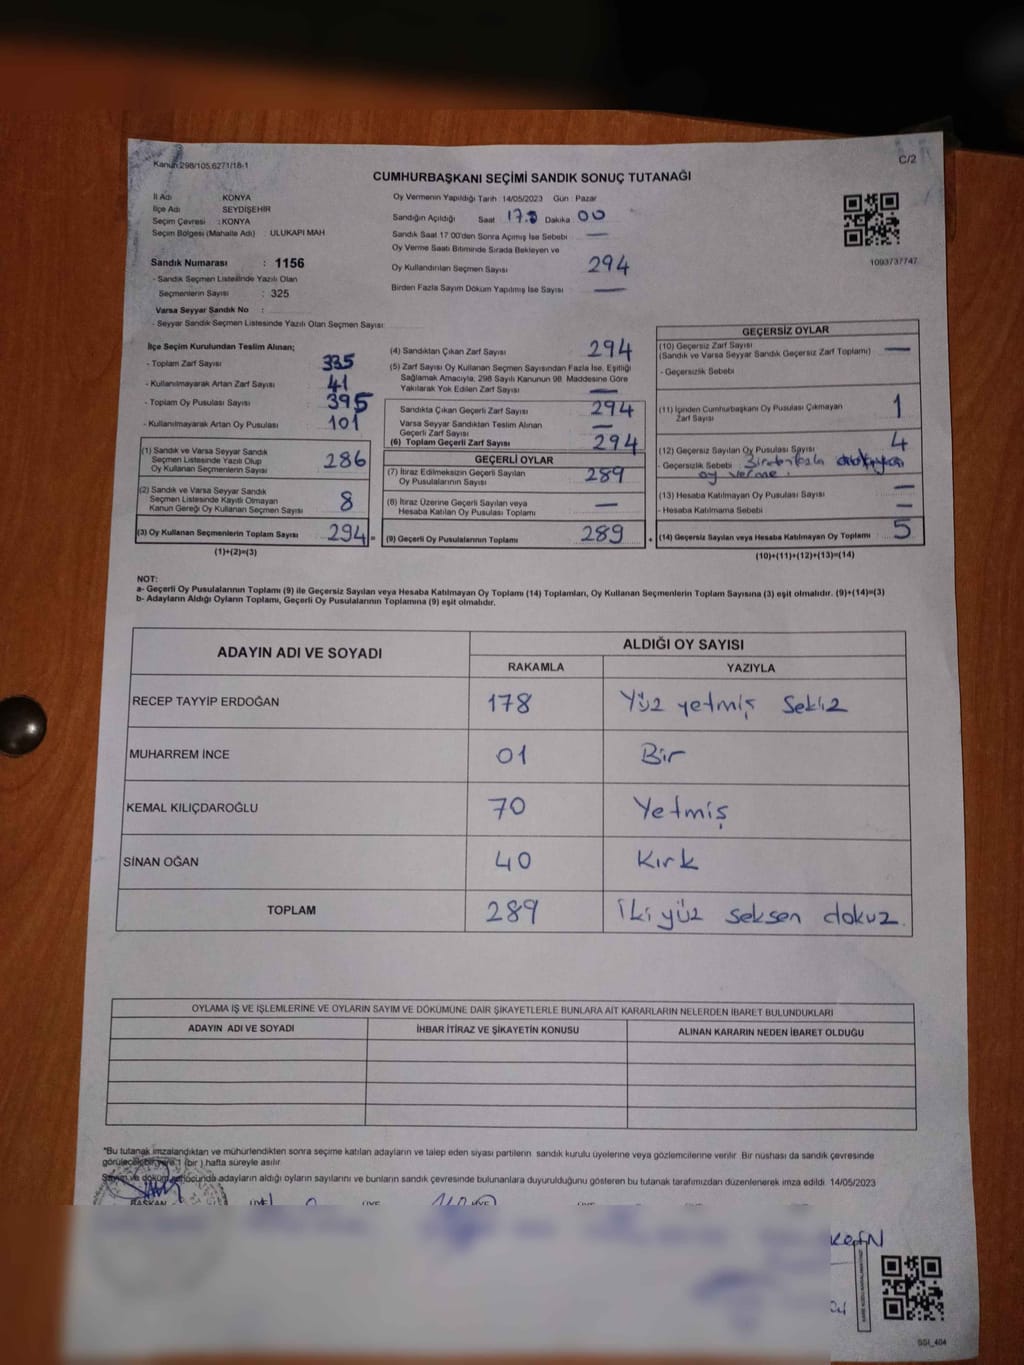 Kanun:298/105.6271/18-1
C/2
CUMHURBAŞKANI SEÇİMİ SANDIK SONUÇ TUTANAĞI
İl Adı KONYA
İlçe Adı SEYDİŞEHİR
Seçim Çevresi : KONYA
Seçim Bölgesi (Mahalle Adı) : ULUKAPI MAH
Oy Vermenin Yapıldığı Tarih : 14/05/2023 Gün : Pazar
Sandığın Açıldığı Saat Dakika 00
Sandık Saat 17.00'den Sonra Açımış İse Sebebi —
Oy Verme Saati Bitiminde Sırada Bekleyen ve
Oy Kullandırılan Seçmen Sayısı 294
Birden Fazla Sayım Döküm Yapılmış İse Sayısı —
1093737747
Sandık Numarası : 1156
- Sandık Seçmen Listesinde Yazılı Olan
Seçmenlerin Sayısı : 325
Varsa Seyyar Sandık No :
- Seyyar Sandık Seçmen Listesinde Yazılı Olan Seçmen Sayısı:
İlçe Seçim Kurulundan Teslim Alınan;
- Toplam Zarf Sayısı 335
- Kullanılmayarak Artan Zarf Sayısı 41
- Toplam Oy Pusulası Sayısı 395
- Kullanılmayarak Artan Oy Pusulası 101
(1) Sandık ve Varsa Seyyar Sandık
Seçmen Listesinde Yazılı Olup
Oy Kullanan Seçmenlerin Sayısı 286
(2) Sandık ve Varsa Seyyar Sandık
Seçmen Listesinde Kayıtlı Olmayan
Kanun Gereği Oy Kullanan Seçmen Sayısı 8
(3) Oy Kullanan Seçmenlerin Toplam Sayısı 294 =
(1)+(2)=(3)
(4) Sandıktan Çıkan Zarf Sayısı 294
(5) Zarf Sayısı Oy Kullanan Seçmen Sayısından Fazla İse, Eşitliği
Sağlamak Amacıyla; 298 Sayılı Kanunun 98. Maddesine Göre
Yakılarak Yok Edilen Zarf Sayısı —
Sandıkta Çıkan Geçerli Zarf Sayısı 294
Varsa Seyyar Sandıktan Teslim Alınan
Geçerli Zarf Sayısı —
(6) Toplam Geçerli Zarf Sayısı 294
GEÇERLİ OYLAR
(7) İtiraz Edilmeksizin Geçerli Sayılan
Oy Pusulalarının Sayısı 289
(8) İtiraz Üzerine Geçerli Sayılan veya
Hesaba Katılan Oy Pusulası Toplamı —
(9) Geçerli Oy Pusulalarının Toplamı 289 +
GEÇERSİZ OYLAR
(10) Geçersiz Zarf Sayısı —
(Sandık ve Varsa Seyyar Sandık Geçersiz Zarf Toplamı)
- Geçersizlik Sebebi
(11) İçinden Cumhurbaşkanı Oy Pusulası Çıkmayan
Zarf Sayısı 1
(12) Geçersiz Sayılan Oy Pusulası Sayısı 4
- Geçersizlik Sebebi Birden fazla
oy verme.
(13) Hesaba Katılmayan Oy Pusulası Sayısı —
- Hesaba Katılmama Sebebi —
(14) Geçersiz Sayılan veya Hesaba Katılmayan Oy Toplamı 5
(10)+(11)+(12)+(13)=(14)
NOT:
a- Geçerli Oy Pusulalarının Toplamı (9) ile Geçersiz Sayılan veya Hesaba Katılmayan Oy Toplamı (14) Toplamları, Oy Kullanan Seçmenlerin Toplam Sayısına (3) eşit olmalıdır. (9)+(14)=(3)
b- Adayların Aldığı Oyların Toplamı, Geçerli Oy Pusulalarının Toplamına (9) eşit olmalıdır.
ADAYIN ADI VE SOYADI ALDIĞI OY SAYISI
RAKAMLA YAZIYLA
RECEP TAYYİP ERDOĞAN 178 Yüz yetmiş sekiz
MUHARREM İNCE 01 Bir
KEMAL KILIÇDAROĞLU 70 Yetmiş
SİNAN OĞAN 40 Kırk
TOPLAM 289 İki yüz seksen dokuz.
OYLAMA İŞ VE İŞLEMLERİNE VE OYLARIN SAYIM VE DÖKÜMÜNE DAİR ŞİKAYETLERLE BUNLARA AİT KARARLARIN NELERDEN İBARET BULUNDUKLARI
ADAYIN ADI VE SOYADI İHBAR İTİRAZ VE ŞİKAYETİN KONUSU ALINAN KARARIN NEDEN İBARET OLDUĞU
*Bu tutanak imzalandıktan ve mühürlendikten sonra seçime katılan adayların ve talep eden siyasi partilerin sandık kurulu üyelerine veya gözlemcilerine verilir. Bir nüshası da sandık çevresinde
görülecek bir yere 1 (bir) hafta süreyle asılır.
Sayım ve döküm sonucunda adayların aldığı oyların sayılarını ve bunların sandık çevresinde bulunanlara duyurulduğunu gösteren bu tutanak tarafımızdan düzenlenerek imza edildi. 14/05/2023
BAŞKAN ÜYE ÜYE ÜYE
SSI_404